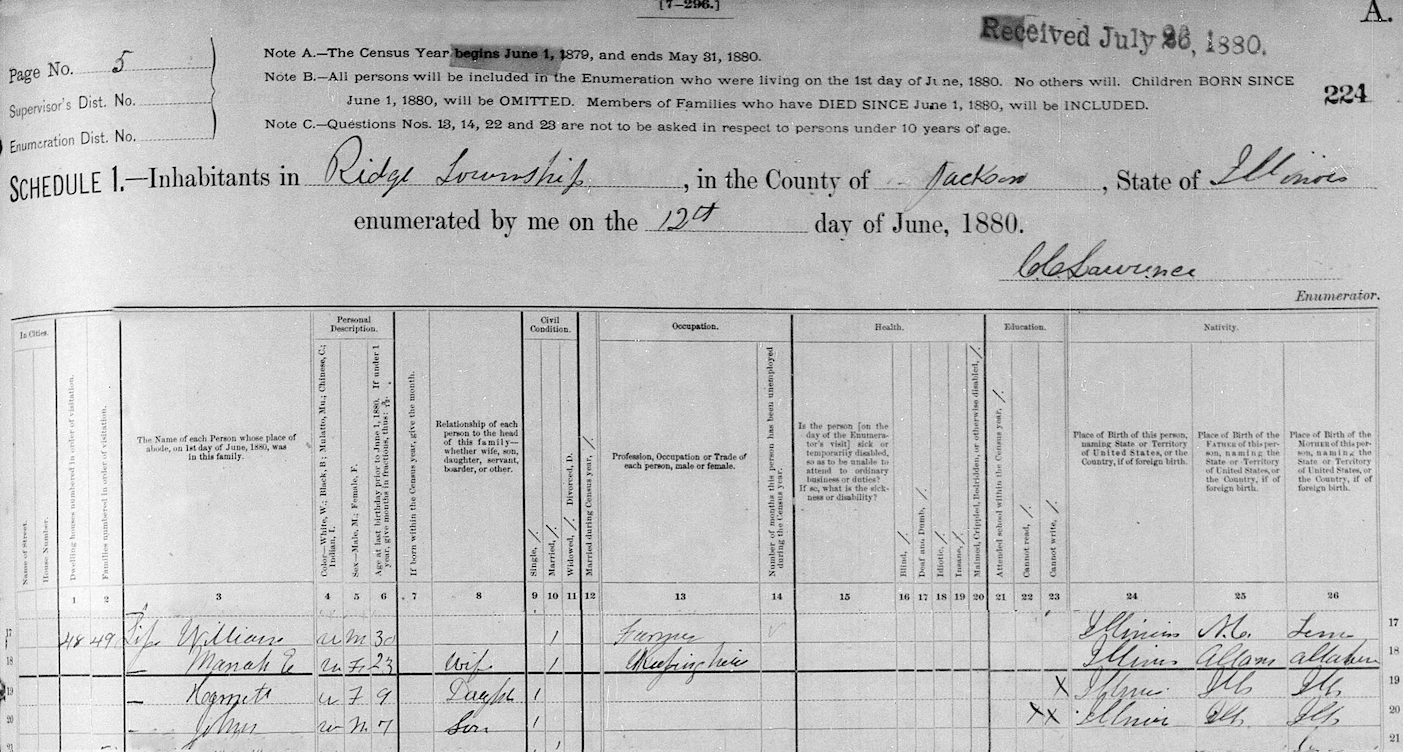 [7–296.]
A.
Received July 26, 1880.
Page No. 5
Supervisor's Dist. No.
Enumeration Dist. No.
Note A.—The Census Year begins June 1, 1879, and ends May 31, 1880.
Note B.—All persons will be included in the Enumeration who were living on the 1st day of June, 1880. No others will. Children BORN SINCE
June 1, 1880, will be OMITTED. Members of Families who have DIED SINCE June 1, 1880, will be INCLUDED.
Note C.—Questions Nos. 13, 14, 22 and 23 are not to be asked in respect to persons under 10 years of age.
224
SCHEDULE 1.—Inhabitants in Ridge Township, in the County of Jackson, State of Illinois
enumerated by me on the 12th day of June, 1880.
C.C. Lawrence
Enumerator.
In Cities.
Name of Street.
House Number.
Dwelling houses numbered in order of visitation.
Families numbered in order of visitation.
The Name of each Person whose place of
abode, on 1st day of June, 1880, was
in this family.
Personal
Description.
Color—White, W.; Black, B.; Mulatto, Mu.; Chinese, C.;
Indian, I.
Sex—Male, M.; Female, F.
Age at last birthday prior to June 1, 1880. If under 1
year, give months in fractions, thus:
If born within the Census year, give the month.
Relationship of each
person to the head
of this family—
whether wife, son,
daughter, servant,
boarder, or other.
Civil
Condition.
Single, /.
Married, /.
Widowed, /. Divorced, D.
Married during Census year, /.
Occupation.
Profession, Occupation or Trade of
each person, male or female.
Number of months this person has been unemployed
during the Census year.
Health.
Is the person [on the
day of the Enumera-
tor's visit] sick or
temporarily disabled,
so as to be unable to
attend to ordinary
business or duties?
If so, what is the sick-
ness or disability?
Blind, /.
Deaf and Dumb, /.
Idiotic, /.
Insane, /.
Maimed, Crippled, Bedridden, or otherwise disabled, /.
Education.
Attended school within the Census year, /.
Cannot read, /.
Cannot write, /.
Nativity.
Place of Birth of this person,
naming State or Territory
of United States, or the
Country, if of foreign birth.
Place of Birth of the
FATHER of this per-
son, naming the
State or Territory
of United States, or
the Country, if of
foreign birth.
Place of Birth of the
MOTHER of this per-
son, naming the
State or Territory
of United States, or
the Country, if of
foreign birth.
1 2 3 4 5 6 7 8 9 10 11 12 13 14 15 16 17 18 19 20 21 22 23 24 25 26
17 48 49 William W M 30 / Farmer Illinois N.C. Tenn 17
18 — W F 23 Wife / Illinois 18
19 — W F 9 / X 19
20 — John W M 7 Son / XX 20
21 / 21